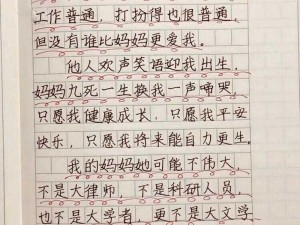 工作普通，打扮得也很普通，
但没有谁比妈妈更爱我。
他人欢声笑语迎我出生，
妈妈九死一生换我一声啼哭，
只愿我健康成长，只愿我平安
快乐，只愿我将来能自力更生。
我的妈妈她可能不伟大，
不是大律师，不是科研人员，
也不是大学者，更不是大文学